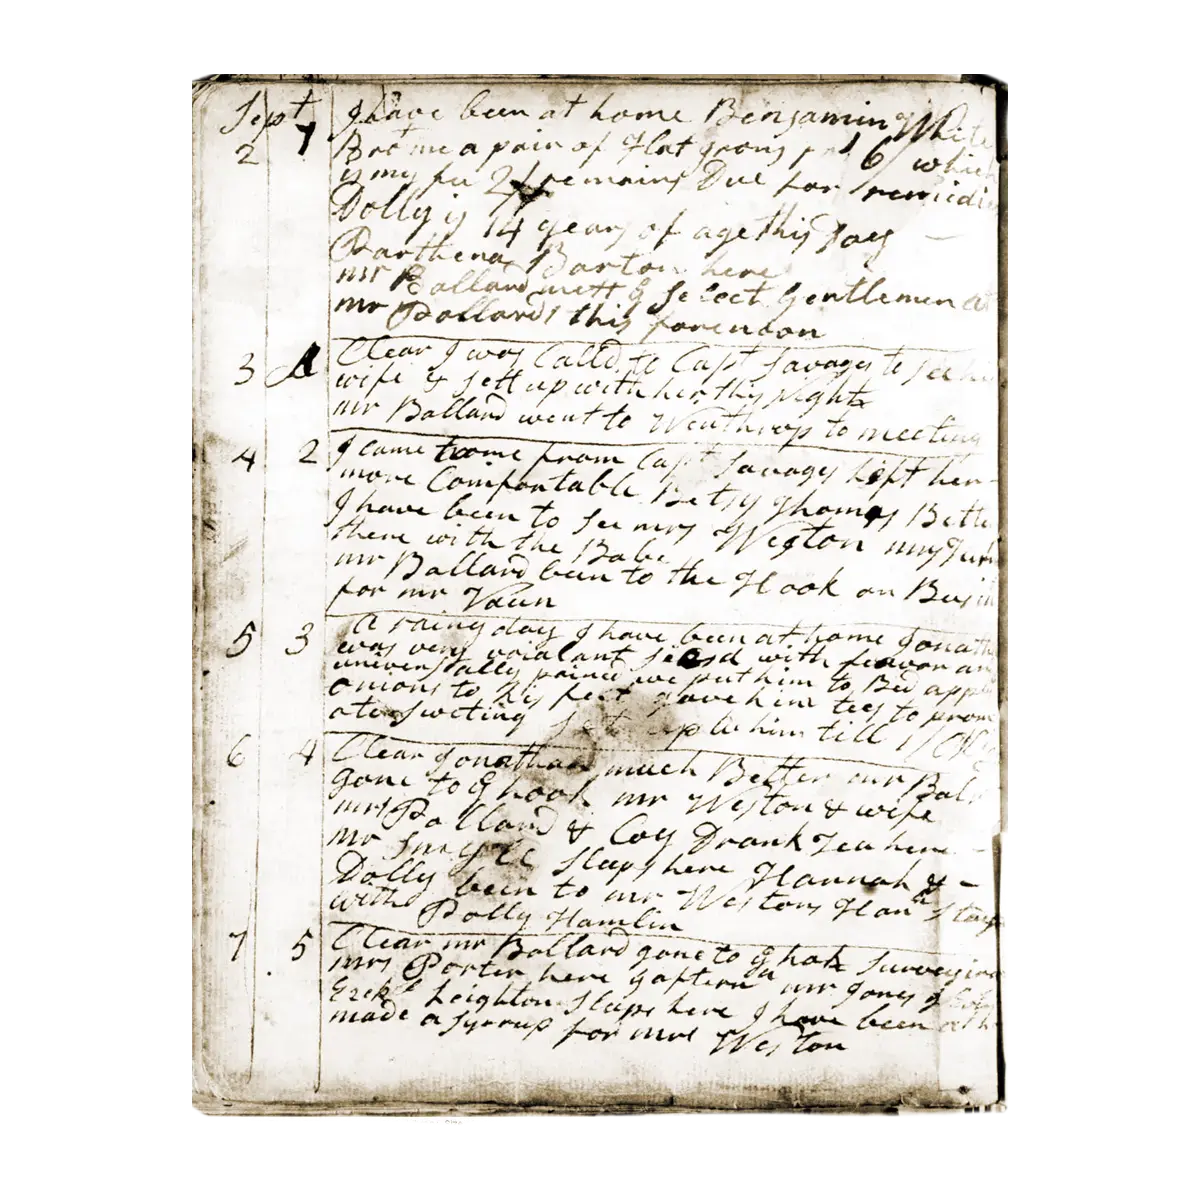 Sept 7 I have been at home Benjamin White
2 Brot me a pair of Flat irons 6/ which
is my fee 2/ remains Due for remidies
Dolly is 14 years of age this Day
Parthena Barton here
mr Ballard mett ye Select Gentlemen at
mr Pollards this forenoon
3 A Clear I was Calld to Capt Savages to see his
wife & sett up with her this night
mr Ballard went to Winthrop to meeting
4 2 I came home from Capt Savages left her
more Comfortable Betsy Thomas Better
I have been to see mrs Weston my
there with the Babe
mr Ballard been to the Hook on Busin
for mr Vaun
5 3 A rainy day I have been at home Jonath
was very voialant seasd with feavor an
universally pained we put him to Bed apply
onions to his feet gave him tees to prom
ote sweting sett up with him till 1/
6 4 Clear Jonathan much Better mr Bal
gone to ye hook mr Weston & wife
mrs Pollard & Coy Drank Tea here
mr Smyth sleeps here Hannah &
Dolly been to mr Westons Hanh stays
with Polly Hamlin
7 5 Clear mr Ballard gone to ye hook surveying
mrs Porter here aftern mr Jones &
Ezekl Leighton sleeps here I have been at h
made a syrrup for mrs Weston